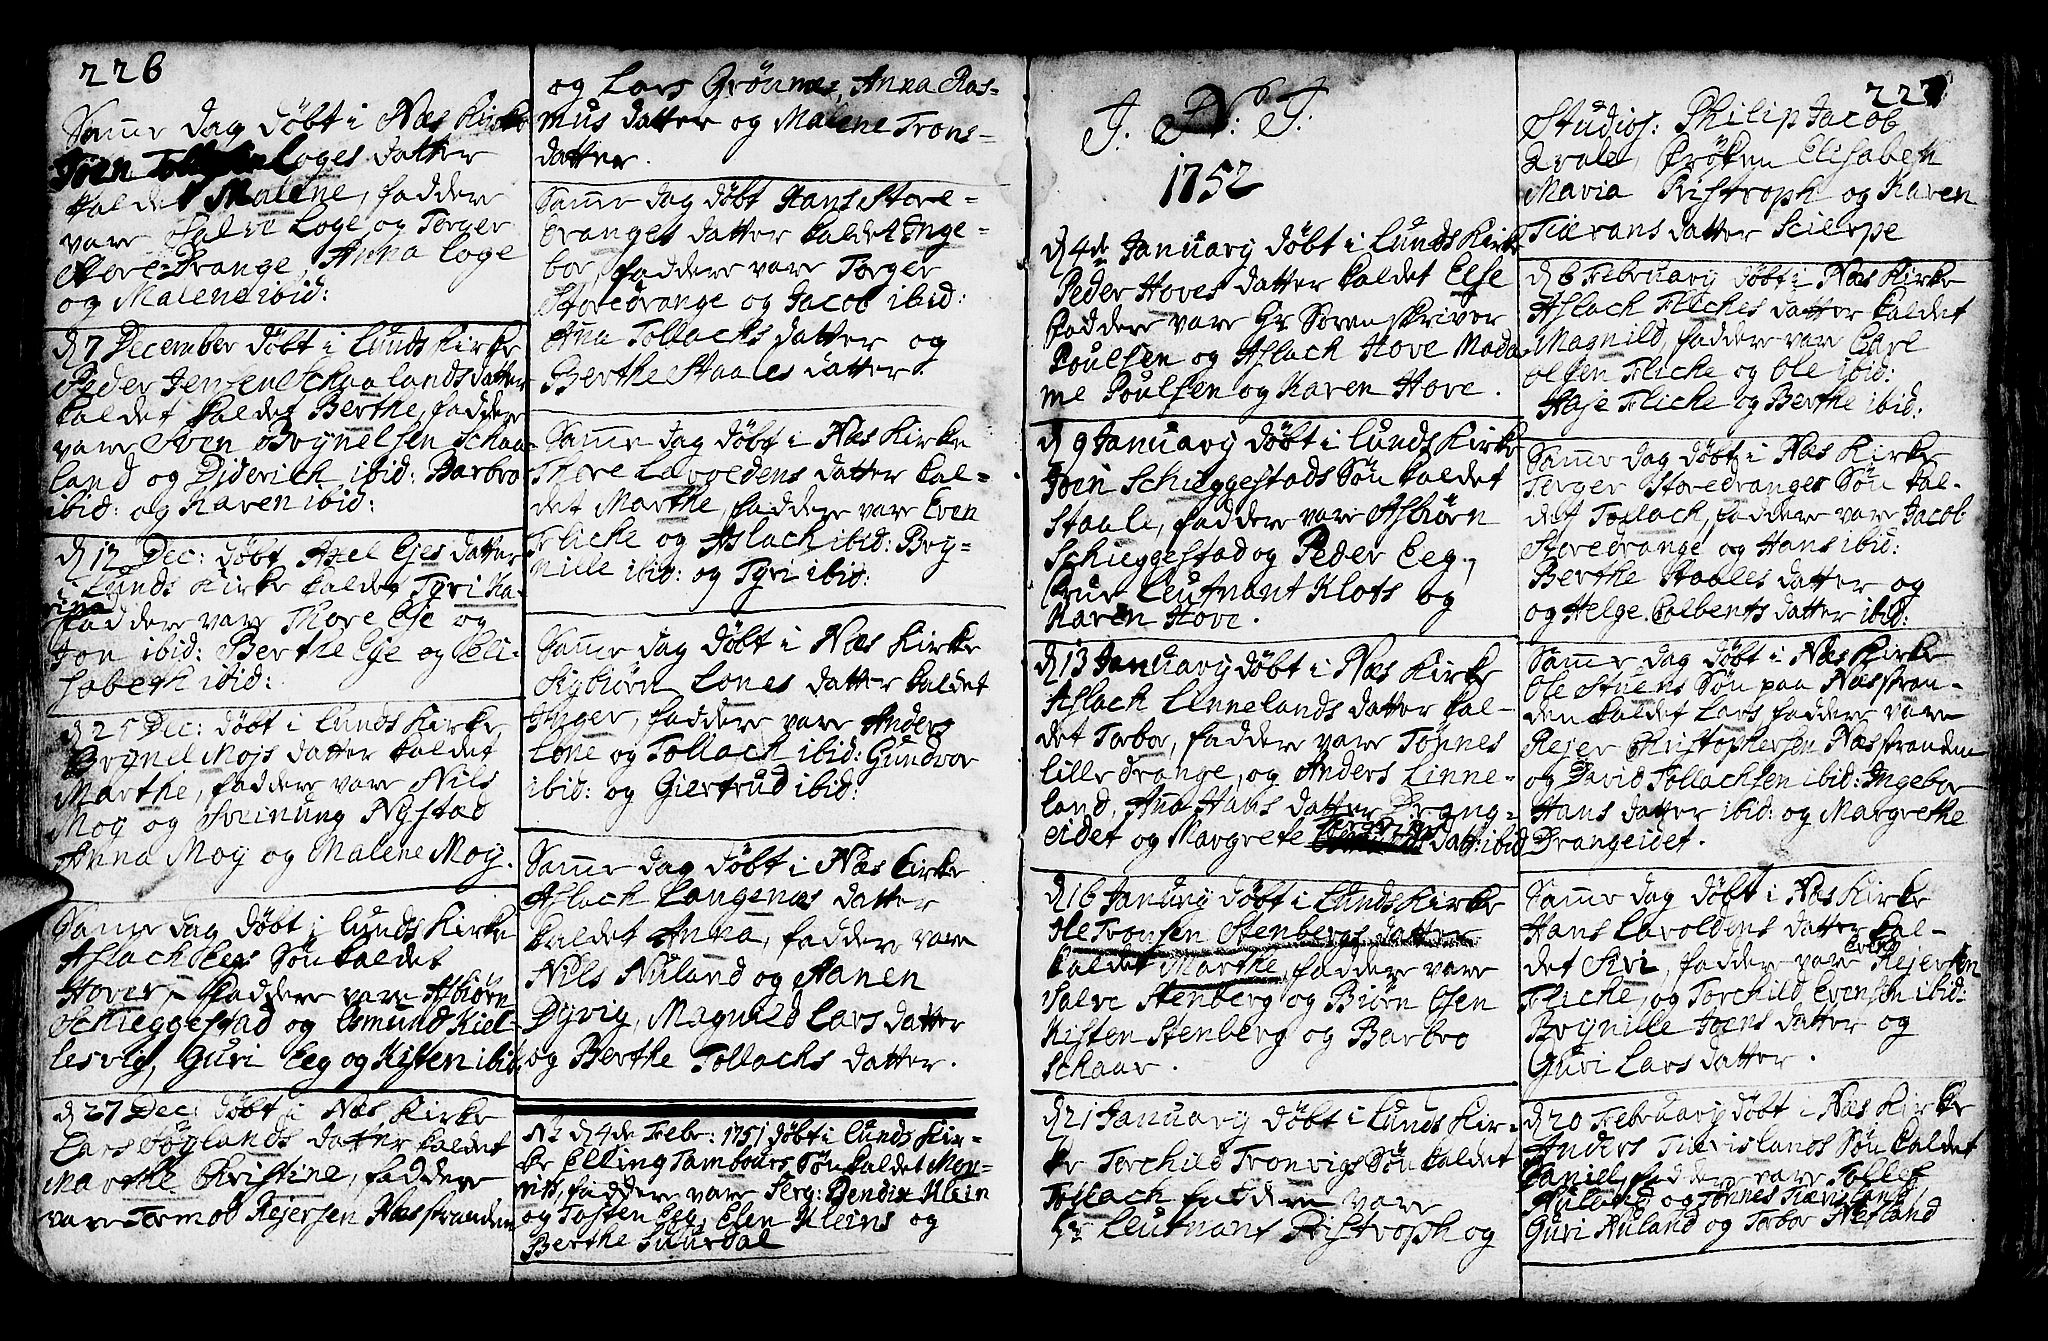 226
Samme dag döbt i Næs Kirke
Joen Loges datter
kaldet Malene, faddere
vare Salve Loge og Torger
Store Drange, Anna Loge
og Malene ibid:
d 7 December döbt i Lunds Kirke
Peder Jensen Schaalands datter
kaldet kaldet Berthe, faddere
vare Sven Brynelsen Schaa-
land og Diderich ibid: Barbro
ibid: og Karen ibid:
d 12 Dec: döbt Axel Ejes datter
i Lunds Kirke kaldet Tyri Ka-
rina
faddere vare Thore Eje og
Jon ibid: Berthe Eje og Eli-
sabeth ibid:
d 25 Dec: döbt i Lunds Kirke
Brynel Mojs datter kaldet
Marthe, faddere vare Nils
Moy og Sveinung Nystad
Anna Moy og Malene Moy.
Same dag döbt i Lunds Kirke
Aslach Eegs Sön kaldet
Hover, faddere vare Asbiörn
Schieggestad og Osmund Kiel-
lesvig, Guri Eeg og Kisten ibid:
d 27 Dec: döbt i Næs Kirke
Lars Söylands datter kaldet
Marthe Christine, faddere
vare Tormod Rejersen Næsstranden
og Lars Grönnes, Anna Ras-
mus datter og Malene Trons-
datter.
Samme dag döbt Hans Store-
dranges datter kaldet Inge-
bor, faddere vare Torger
Storedrange og Jacob ibid:
Ana Tollachs datter og
Berthe Staales datter.
Samme dag döbt i Næs Kirke
Thore Lavoldens datter kal-
det Marthe, faddere vare Even
Flicke og Aslach ibid: Bry-
nille ibid: og Tyri ibid:
Samme dag döbt i Næs Kirke
Sigbiörn Lones datter kaldet
Inger, faddere vare Anders
Lone og Tollach ibid: Gundvor
ibid: og Giertrud ibid:
Samme dag döbt i Næs Kirke
Aslach Langenæs datter
kaldet Anna, faddere vare
Nils Nuland og Aanen
Dyvig, Magnild Lars datter
og Berthe Tollachs datter.
NB d 4de Febr: 1751 döbt i Lunds Kir-
ke Elling Tambours Sön kaldet Mou-
rits, faddere vare Serg: Bendix Klein
og Tosten Eeg, Elen Kleins og
Berthe Suurdal
227
J. N: J:
1752
d 4de January döbt i Lunds Kirke
Peder Hoves datter kaldet Else
faddere vare Hr Sorenskriver
Poulsen og Aslach Hove Mada-
me Poulsen og Karen Hove.
d 9 January döbt i Lunds Kirke
Joen Schieggestads Sön kaldet
Staale, faddere vare Asbiörn
Schieggestad og Peder Eeg,
frue Leutnant Klots og
Karen Hove.
d 13 January döbt i Næs Kirke
Aslach Linnelands datter kal-
det Torbor, faddere vare Tönnes
Lille drange, og Anders Linne-
land, Ana Hans datter Drang-
eidet og Margrete datt: ibid
d 16 January döbt i Lunds Kirke
Ole Tronsen Stenbergs datter
kaldet Marthe, faddere vare
Salve Stenberg og Biörn Osen
Kisten Stenberg og Barbro
Schaar.
d 21 January döbt i Lunds Kir-
ke Torchild Tronvigs Sön kaldet
Tollach faddere vare
Hr Leutnant Ristroph og
Studios: Philip Jacob
Qvale, fröken Elisabeth
Maria Ristroph og Karen
Tiærans datter Scierpe
d 6 February döbt i Næs Kirke
Aslach Fliches datter kaldet
Magnild, faddere vare Carl
Olsen Flicke og Ole ibid:
Aase Flicke og Berthe ibid:
Samme dag döbt i Næs Kirke
Torger Storedranges Sön kal-
det Tollach, faddere vare Jacob
Storedrange og Hans ibid:
Berthe Staales datter og
og Helge Colbents datter ibid:
Samme dag döbt i Næs Kirke
Ole Stuens Sön paa Næsstran-
den kaldet Lars, faddere vare
Rejer Christophersen Næsstranden
og David Tollachsen ibid: Ingebor
Hans datter ibid: og Margrethe
Drangeidet.
Samme dag döbt i Næs Kirke
Hans Lavoldens datter kal-
det Siri, faddere vare Rejersen
Flicke, og Torchild Evensen ibid:
Brynille Joens datter og
Guri Lars datter.
d 20 February döbt i Næs Kirke
Anders Tiærislands Sön kaldet
Daniel, faddere vare Tollef
Nuland og Tönnes Tiærisland
Guri Nuland og Torbor Netland